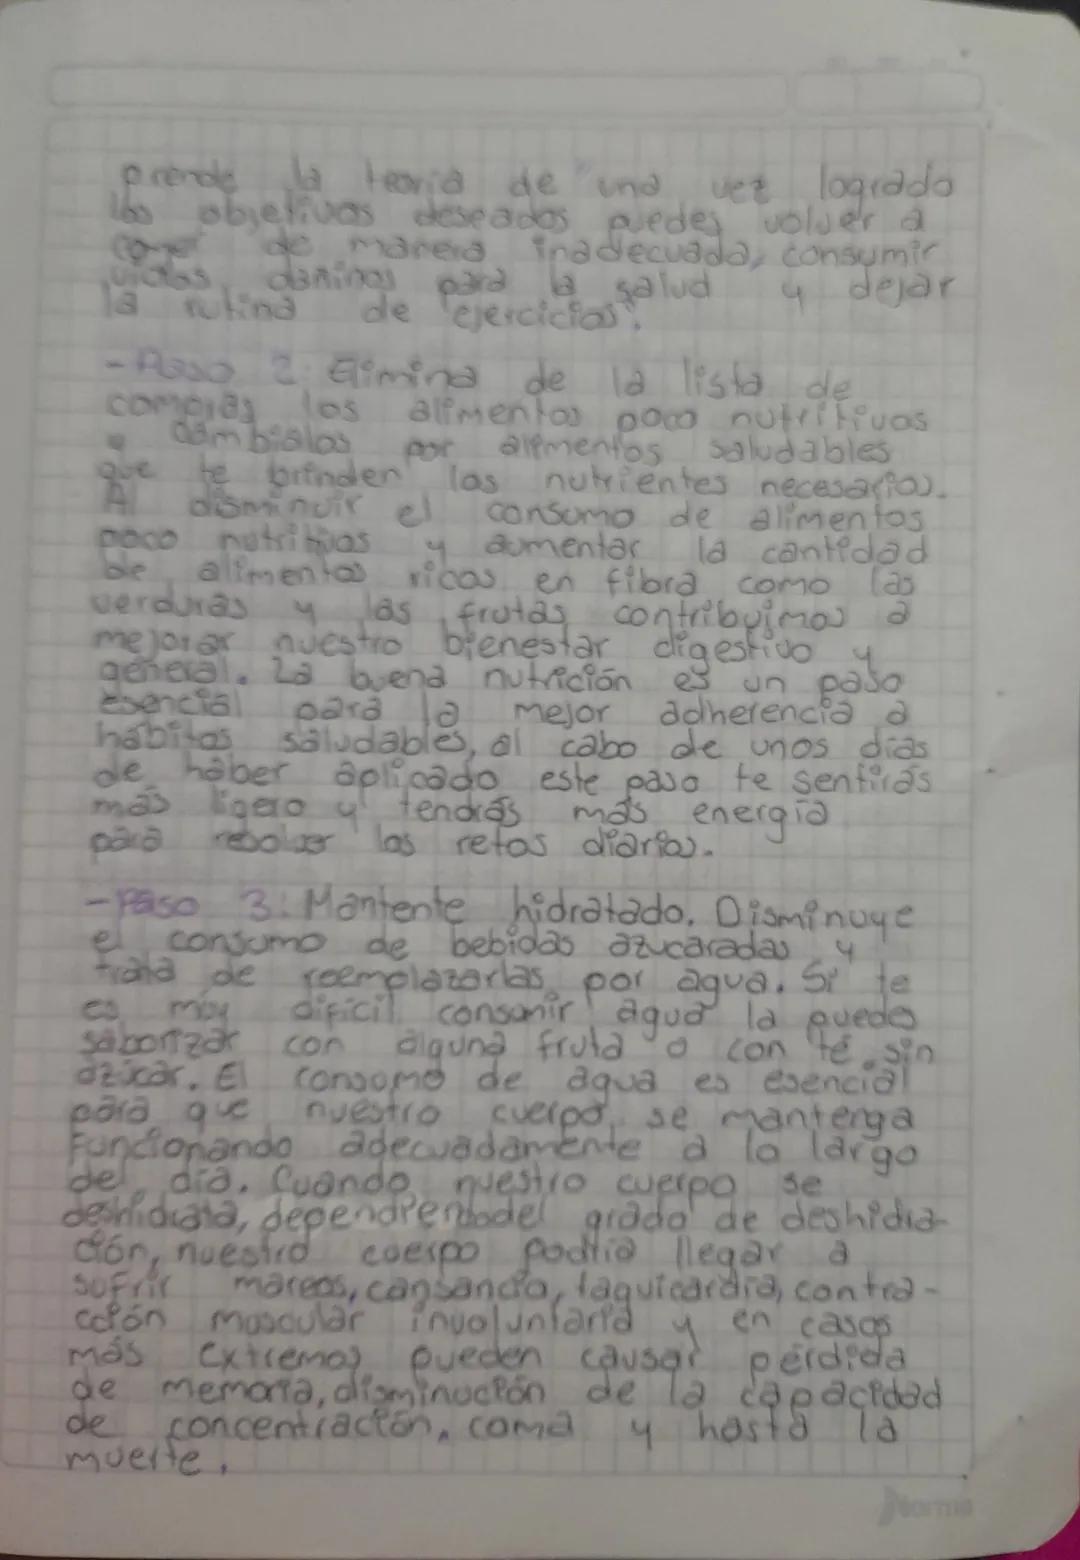 prende la teoria de una vez logrado
los objetivos deseados puedes volver a
comer de manera inadecuada, consumir
vicios dañinos para la salud y dejar
la rutina de ejercicios.
- Paso 2: Elimina de la lista de
compras los alimentos poco nutritivos
y cambialos por alimentos saludables
que te brinden los nutrientes necesarios.
Al disminuir el consumo de alimentos
poco nutritivos y aumentar la cantidad
de alimentos ricos en fibra como las
verduras y las frutas contribuimos a
mejorar nuestro bienestar digestivo y
general. La buena nutrición es un paso
esencial para la mejor adherencia a
habitos saludables, al cabo de unos dias
de haber aplicado este paso te sentirás
más ligero y tendrás más energia
para resolver los retos diarios.
- Paso 3: Mantente hidratado. Disminuye
el consumo de bebidas azucaradas y
trata de reemplazarlas por agua. Si te
es muy dificil consumir agua la puedes
saborizar con alguna fruta o con té sin
azúcar. El consumo de agua es esencial
para que nuestro cuerpo se mantenga
funcionando adecuadamente a lo largo
del dia. Cuando nuestro cuerpo se
deshidrata, dependiendodel grado de deshidra-
ción, nuestro cuerpo podria llegar a
sufrir mareos, cansancio, taquicardia, contra-
cción muscular involuntaria y en casos
más extremos pueden causar pérdida
de memoria, disminución de la capacidad
de concentración, coma y hasta la
muerte.
Norma